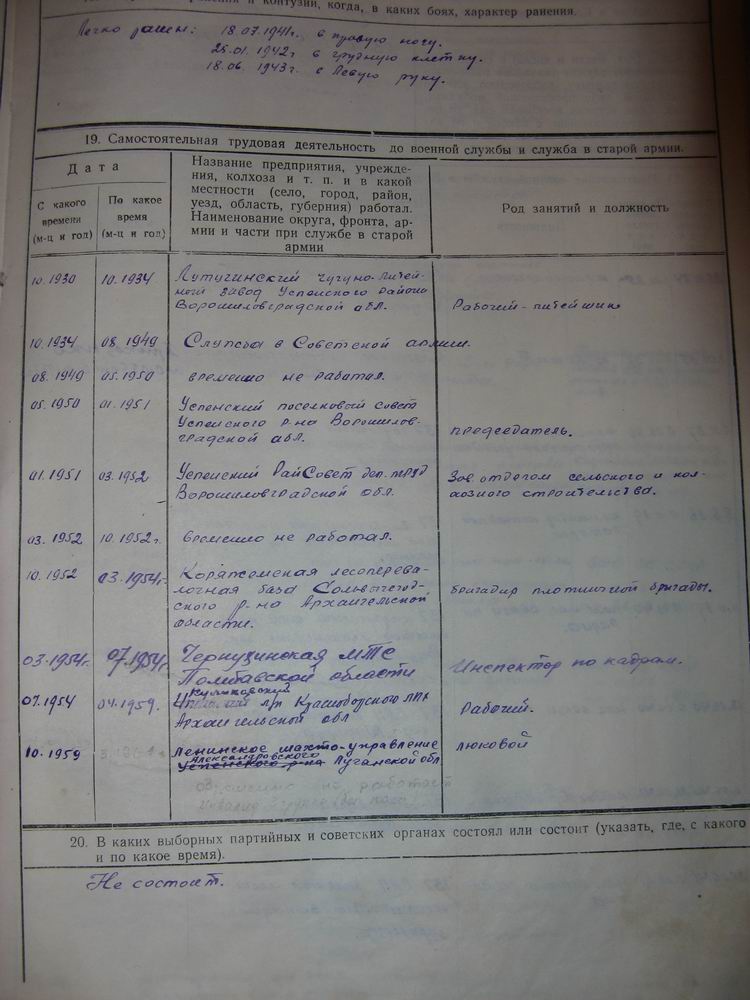 ранения и контузии, когда, в каких боях, характер ранения.
Легко ранен: 18.07.1941г. в правую ногу.
25.01.1942г в грудную клетку.
18.06.1943г. в Левую руку.
19. Самостоятельная трудовая деятельность до военной службы и служба в старой армии.
Дата
С какого времени (м-ц и год)
По какое время (м-ц и год)
Название предприятия, учрежде-
ния, колхоза и т. п. и в какой
местности (село, город, район,
уезд, область, губерния) работал.
Наименование округа, фронта, ар-
мии и части при службе в старой
армии
Род занятий и должность
10.1930 10.1934 Лутугинский чугуно-литей-
ный завод Успенского района
Ворошиловградской обл. Рабочий-литейщик
10.1934 08.1949 Служба в Советской армии.
08.1949 05.1950 временно не работал.
05.1950 01.1951 Успенский поселковый совет
Успенского р-на Ворошилов-
градской обл. председатель.
01.1951 03.1952 Успенский РайСовет деп. труд
Ворошиловградской обл. Зав отделом сельского и кол-
хозного строительства.
03.1952 10.1952г. временно не работал.
10.1952 03.1954г. Коряжемская лесоперева-
лочная база Сольвычегод-
ского р-на Архангельской
области. бригадир плотничной бригады.
03.1954г. 07.1954г. Чернухинская МТС
Полтавской области Инспектор по кадрам.
Куликовский
07.1954 04.1959. л/п Красноборского ЛПХ
Архангельской обл Рабочий.
10.1959 Ленинское шахто-управление люковой
Александровского
Успенского р-на Луганской обл.
временно не работает
Инвалид группы
20. В каких выборных партийных и советских органах состоял или состоит (указать, где, с какого
и по какое время).
Не состоит.